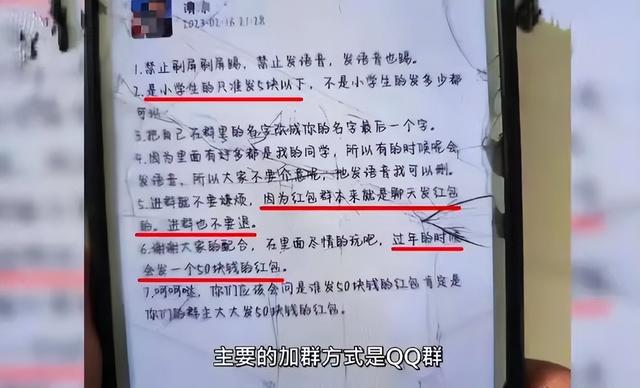 2023-02-16 21:28
1.禁止刷屏刷屏踢,禁止发语音,发语音也踢。
2.是小学生的只准发5块以下,不是小学生的发多少都
可以
3.把自己在群里的名字弥成你的名字最后一个字。
4.因为里面有好多都是我的同学,所以有的时候呢会
发语音,所以大家不要介意呢,他发语音我可以删。
5.进群就不要嫌烦,因为红包群本来就是聊天发红包
的。进群也不要退。
6.谢谢大家的配合,在里面尽情的玩吧,过年的时候
会发一个50块钱的红包。
7.呵呵哒,你们应该会问是谁发50块钱的红包肯定是
你们的群主大大发50块钱的红包。
主要的加群方式是QQ群